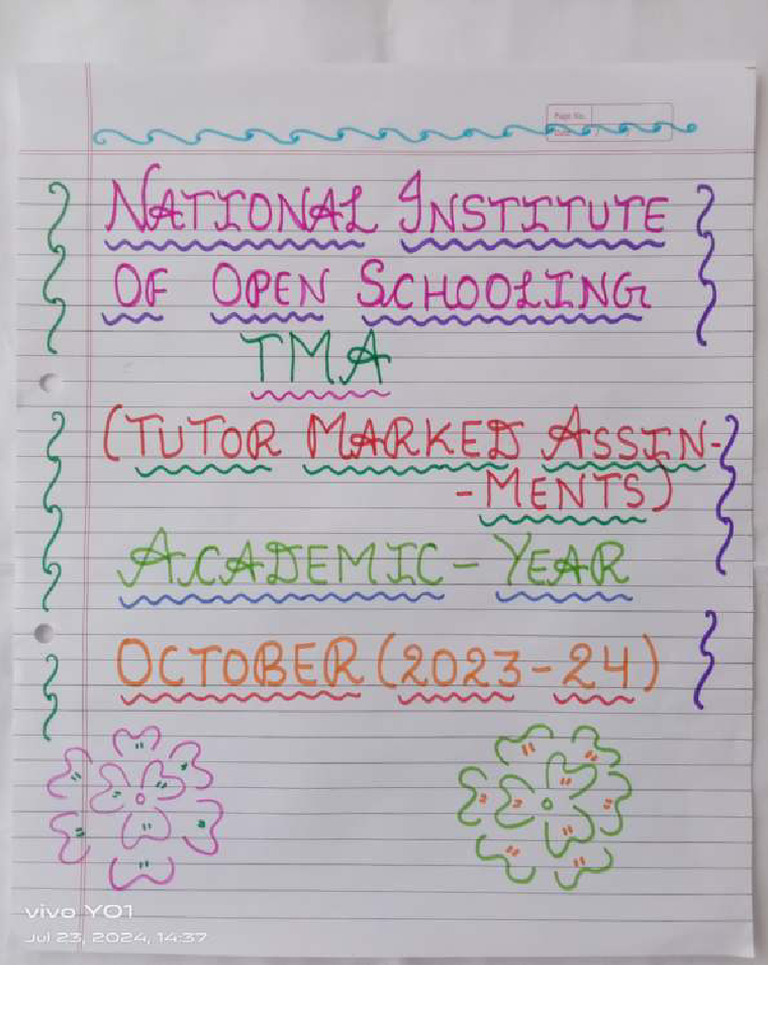 Page No.
NATIONAL INSTITUTE
OF OPEN SCHOOLING
TMA
(TUTOR MARKED ASSIN-
-MENTS)
ACADEMIC - YEAR
OCTOBER (2023-24)
vivo Y01
Jul 23, 2024, 14:37